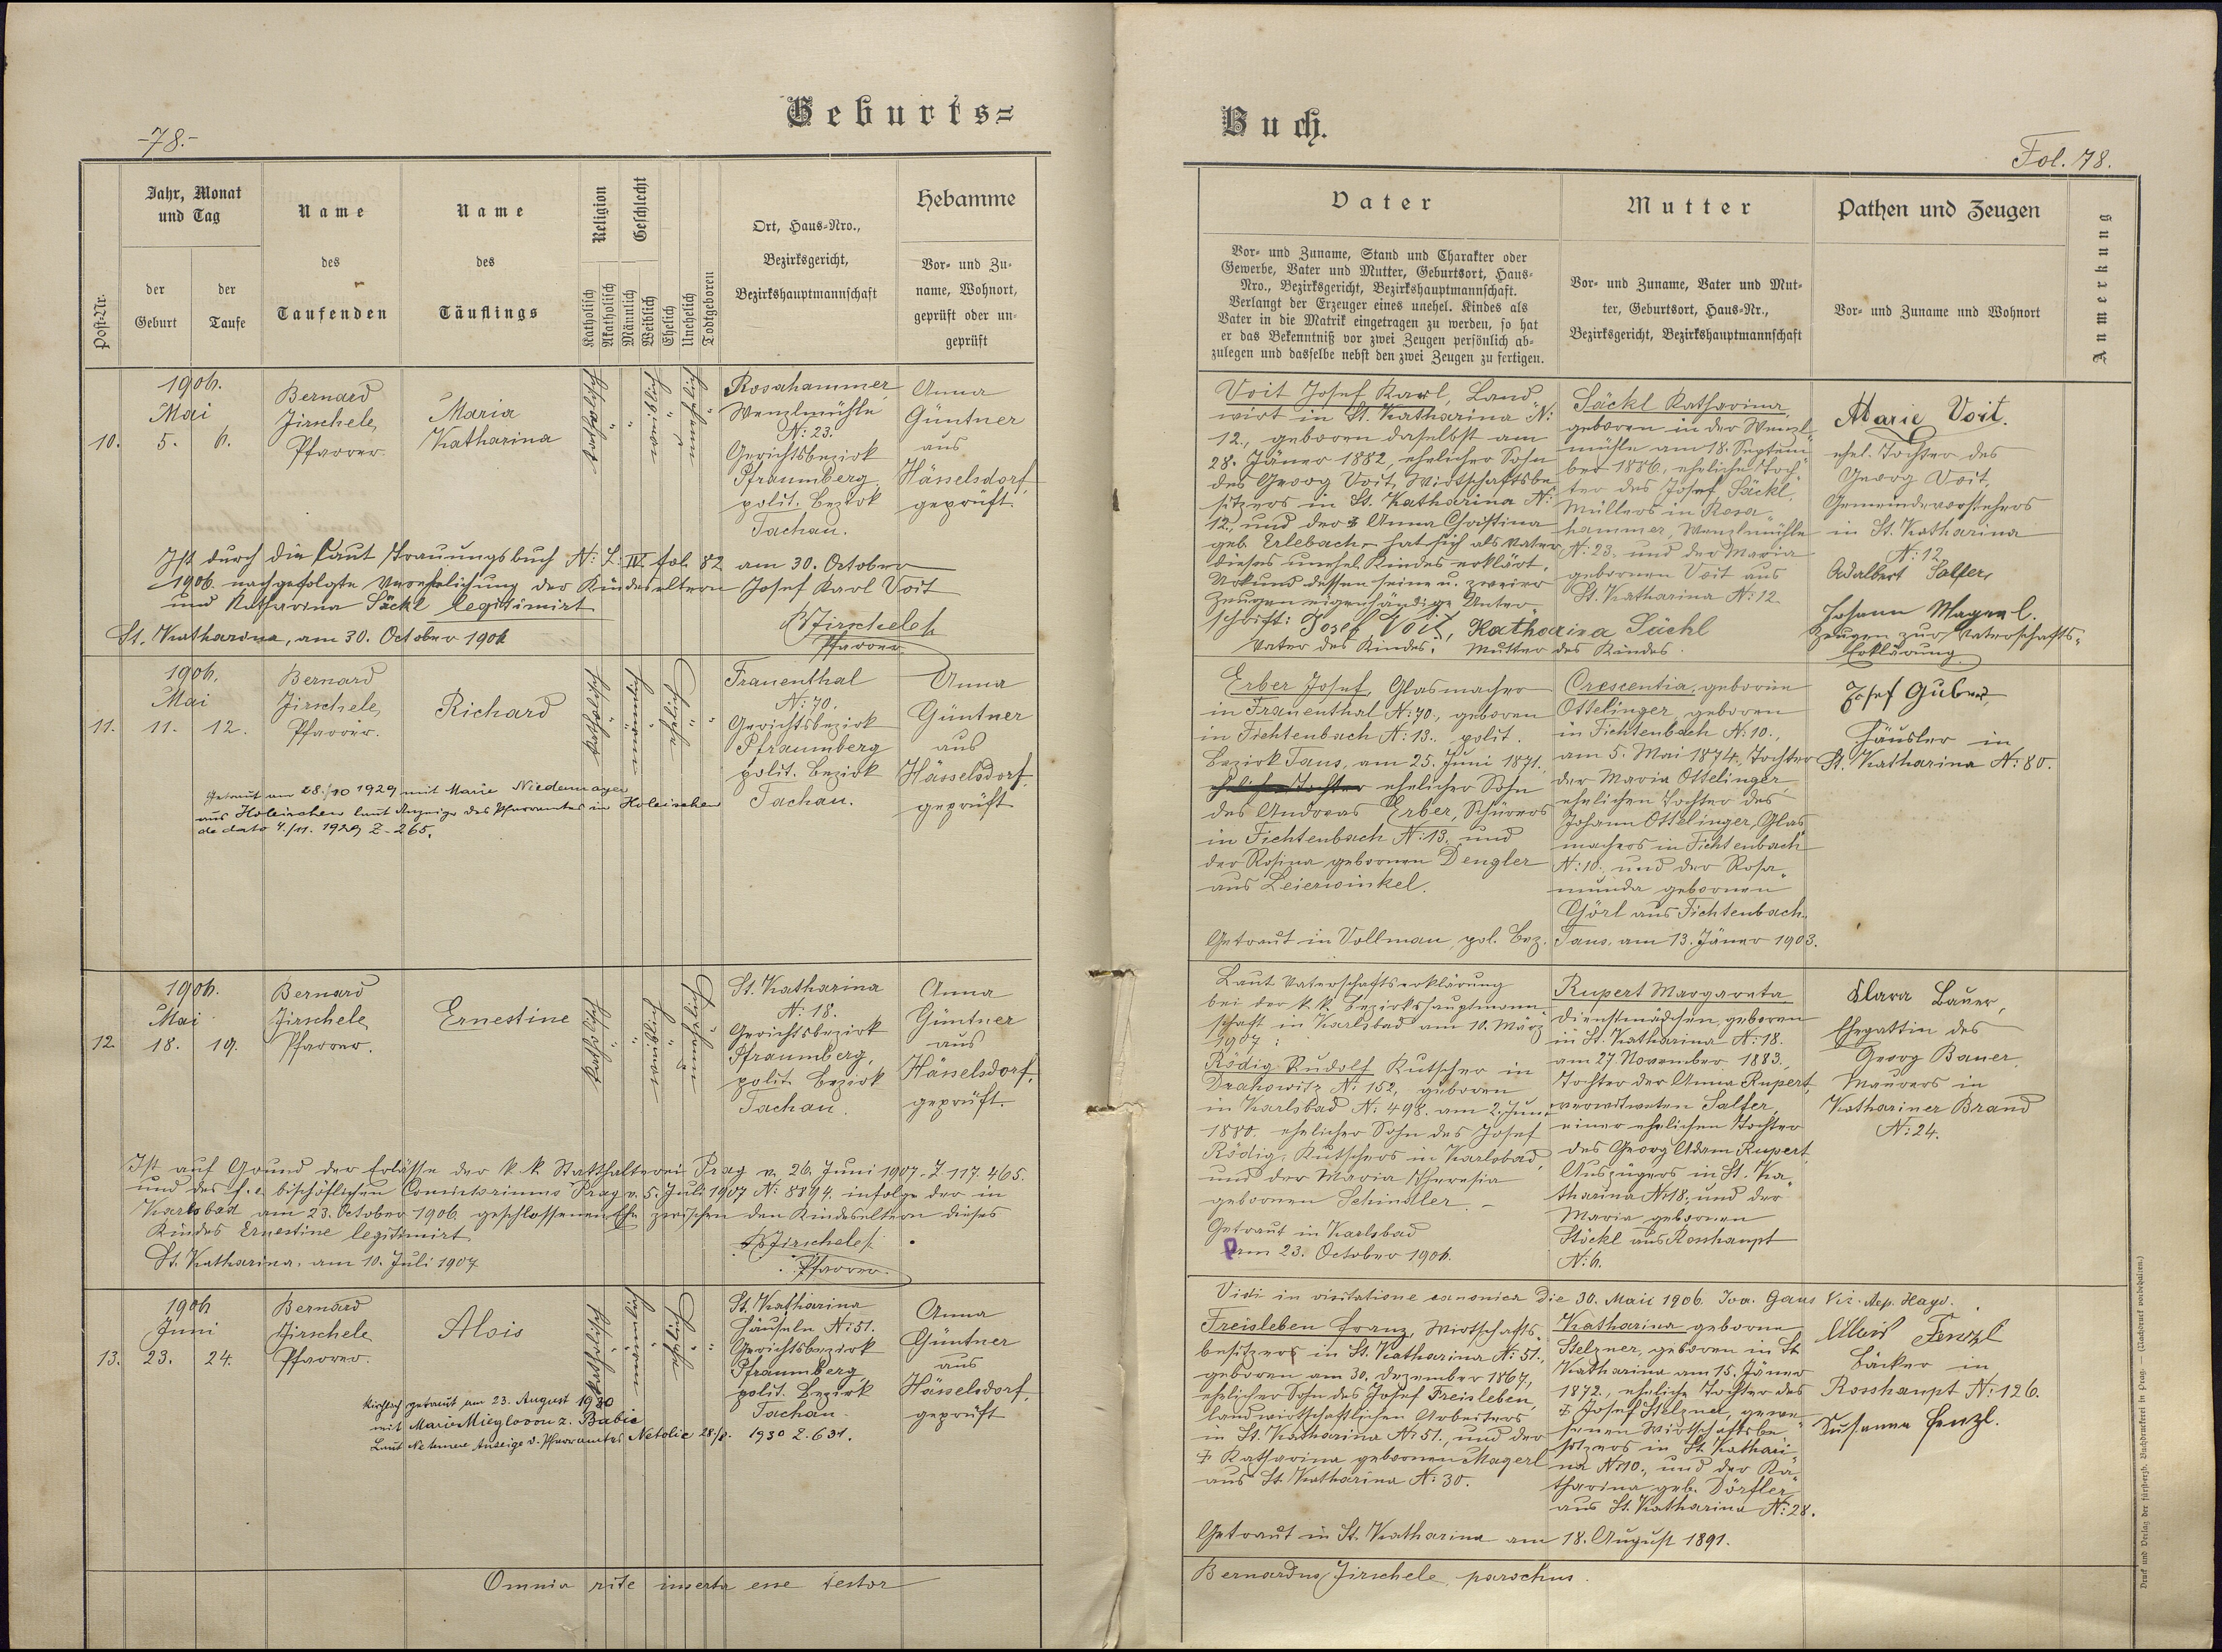 -78.-
Geburts=
Post-Nr.
Jahr, Monat
und Tag
der
Geburt
der
Taufe
Name
des
Taufenden
Name
des
Täuflings
Religion
Katholisch
Akatholisch
Geschlecht
Männlich
Weiblich
Ehelich
Unehelich
Todtgeboren
Ort, Haus-Nro.,
Bezirksgericht,
Bezirkshauptmannschaft
Hebamme
Vor- und Zu-
name, Wohnort,
geprüft oder un-
geprüft
10.
1906.
Mai
5. 6.
Bernard
Jirschele,
Pfarrer.
Maria
Katharina
katholisch
"
"
weiblich
"
unehelich
"
Rosahammer,
Wenzlmühle
N: 23.
Gerichtsbezirk
Pfraumberg,
polit. Bezirk
Tachau.
Anna
Güntner
aus
Hässelsdorf,
geprüft.
Ist durch die laut Trauungsbuch N: L. IV. fol. 82 am 30. October
1906 nachgefolgte Verehelichung der Kindeseltern Josef Karl Voit
und Katharina Säckl legitimirt
St. Katharina, am 30. October 1906
BJirschele
Pfarrer.
11.
1906.
Mai
11. 12.
Bernard
Jirschele,
Pfarrer.
Richard
katholisch
"
männlich
"
Ehelich
"
"
Frauenthal
N: 70.
Gerichtsbezirk
Pfraumberg
polit. Bezirk
Tachau.
Anna
Güntner
aus
Hässelsdorf,
geprüft
Getraut am 28./10 1929 mit Marie Niedermayer
aus Holeischen laut Anzeige des Pfarramtes in Holeischen
de dato 4./11. 1929 Z. 265.
12.
1906.
Mai
18. 19.
Bernard
Jirschele,
Pfarrer.
Ernestine
katholisch
"
"
weiblich
"
Unehelich
St. Katharina
N: 18.
Gerichtsbezirk
Pfraumberg,
polit. Bezirk
Tachau.
Anna
Güntner
aus
Hässelsdorf,
geprüft.
Ist auf Grund der Erlässe der k. k. Statthalterei Prag v. 26. Juni 1907. Z. 117.465.
und des f. e. bischöflichen Consistoriums Prag v. 5. Juli 1907 N: 8894. infolge der in
Karlsbad am 23. October 1906. geschlossenen Ehe zwischen den Kindeseltern dieses
Kindes Ernestine legitimirt
St. Katharina, am 10. Juli 1907
BJirschele
Pfarrer.
13.
1906
Juni
23. 24.
Bernard
Jirschele
Pfarrer.
Alois
katholisch
"
männlich
"
Ehelich
"
"
St. Katharina
Häuseln N: 51.
Gerichtsbezirk
Pfraumberg,
polit. Bezirk
Tachau.
Anna
Güntner
aus
Hässelsdorf,
geprüft
Kirchlich getraut am 23. August 1930
mit Marie z. Babic
Laut Anzeige d. Pfarramtes Netolic 28./8. 1930 Z. 631.
Omnia rite inserta esse testor
Buch.
Fol. 78.
Vater
Vor- und Zuname, Stand und Charakter oder
Gewerbe, Vater und Mutter, Geburtsort, Haus-
Nro., Bezirksgericht, Bezirkshauptmannschaft.
Verlangt der Erzeuger eines unehel. Kindes als
Vater in die Matrik eingetragen zu werden, so hat
er das Bekenntniß vor zwei Zeugen persönlich ab-
zulegen und dasselbe nebst den zwei Zeugen zu fertigen.
Mutter
Vor- und Zuname, Vater und Mut-
ter, Geburtsort, Haus-Nr.,
Bezirksgericht, Bezirkshauptmannschaft
Pathen und Zeugen
Vor- und Zuname und Wohnort
Anmerkung
Voit Josef Karl, Land-
wirt in St. Katharina N:
12., geboren daselbst am
28. Jäner 1882, ehelicher Sohn
des Georg Voit, Wirthschaftsbe-
sitzers in St. Katharina N:
12., und der Anna Christina
geb. Erlebach – hat sich als Vater
dieses unehel. Kindes erklärt.
Urkund dessen seine u. zweier
Zeugen eigenhändige Unter-
schrift: Josef Voit, Katharina Säckl
Vater des Kindes. Mutter des Kindes.
Säckl Katharina,
geboren in der Wenzl-
mühle am 18. Septem-
ber 1886, eheliche Toch-
ter des Josef Säckl,
Müllers in Rosa-
hammer, Wenzlmühle
N: 23. und der Maria
gebornen Voit aus
St. Katharina N: 12.
Marie Voit.
ehel. Tochter des
Georg Voit,
Gemeindevorstehers
in St. Katharina
N: 12
Adalbert Salfer,
Johann Magerl.
Zeugen zur Vaterschafts-
Erklärung.
Erber Josef, Glasmacher
in Frauenthal N: 70., geboren
in Fichtenbach N: 13., polit.
Bezirk Taus, am 25. Juni 1871.,
eheliche Tochter ehelicher Sohn
des Andreas Erber, Schürers
in Fichtenbach N: 13. und
der Rosina gebornen Dengler
aus Leierwinkel.
Getraut in Vollmau, pol. Bez. Taus, am 13. Jäner 1903.
Crescentia, geborne
Ottelinger, geboren
in Fichtenbach N: 10.,
am 5. Mai 1874., Tochter
der Maria Ottelinger,
ehelichen Tochter des
Johann Ottelinger, Glas-
machers in Fichtenbach
N: 10., und der Rosa-
munda gebornen
Görl aus Fichtenbach.
Josef Guber,
Häusler in
St. Katharina N: 80.
Laut Vaterschaftserklärung
bei der k. k. Bezirkshauptmann-
schaft in Karlsbad am 10. März
1907:
Rödig Rudolf Kutscher in
Drahowitz N: 152, geboren
in Karlsbad N: 498. am 2. Juni
1880. ehelicher Sohn des Josef
Rödig, Kutschers in Karlsbad,
und der Maria Theresia
gebornen Schindler. –
Getraut in Karlsbad
am 23. October 1906.
Rupert Margareta
Dienstmädchen, geboren
in St. Katharina N: 18.
am 27 November 1883.,
Tochter der Anna Rupert,
verwitweten Salfer,
einer ehelichen Tochter
des Georg Adam Rupert,
Auszüglers in St. Ka-
tharina N: 18., und der
Maria gebornen
Stöckl aus Rosshaupt
N: 6.
Clara Bauer,
Ehegattin des
Georg Bauer,
Maurers in
Kathariner Brand
N: 24.
Vidi in visitatione canonica die 30. Maii 1906. Joa. Gaus Vic. Aep. Hayd.
Freisleben Franz, Wirtschafts-
besitzers in St. Katharina N: 51.,
geboren am 30. Dezember 1867,
ehelicher Sohn des Josef Freisleben,
landwirtschaftlichen Arbeiters
in St. Katharina N: 51., und der
† Katharina gebornen Magerl
aus St. Katharina N: 30.
Getraut in St. Katharina am 18. August 1891.
Katharina geborne
Stelzner, geboren in St
Katharina am 15. Jäner
1872., eheliche Tochter des
† Josef Stelzner, gewe-
senen Wirtschaftsbe-
sitzers in St. Kathari-
na N: 10., und der Ka-
tharina geb. Dörfler
aus St. Katharina N: 28.
Alois Fenzl
Bäcker in
Rosshaupt N: 126.
Susanna Fenzl.
Bernardus Jirschele, parochus.
Druck und Verlag der fürsterzb. Buchdruckerei in Prag. — (Nachdruck vorbehalten.)